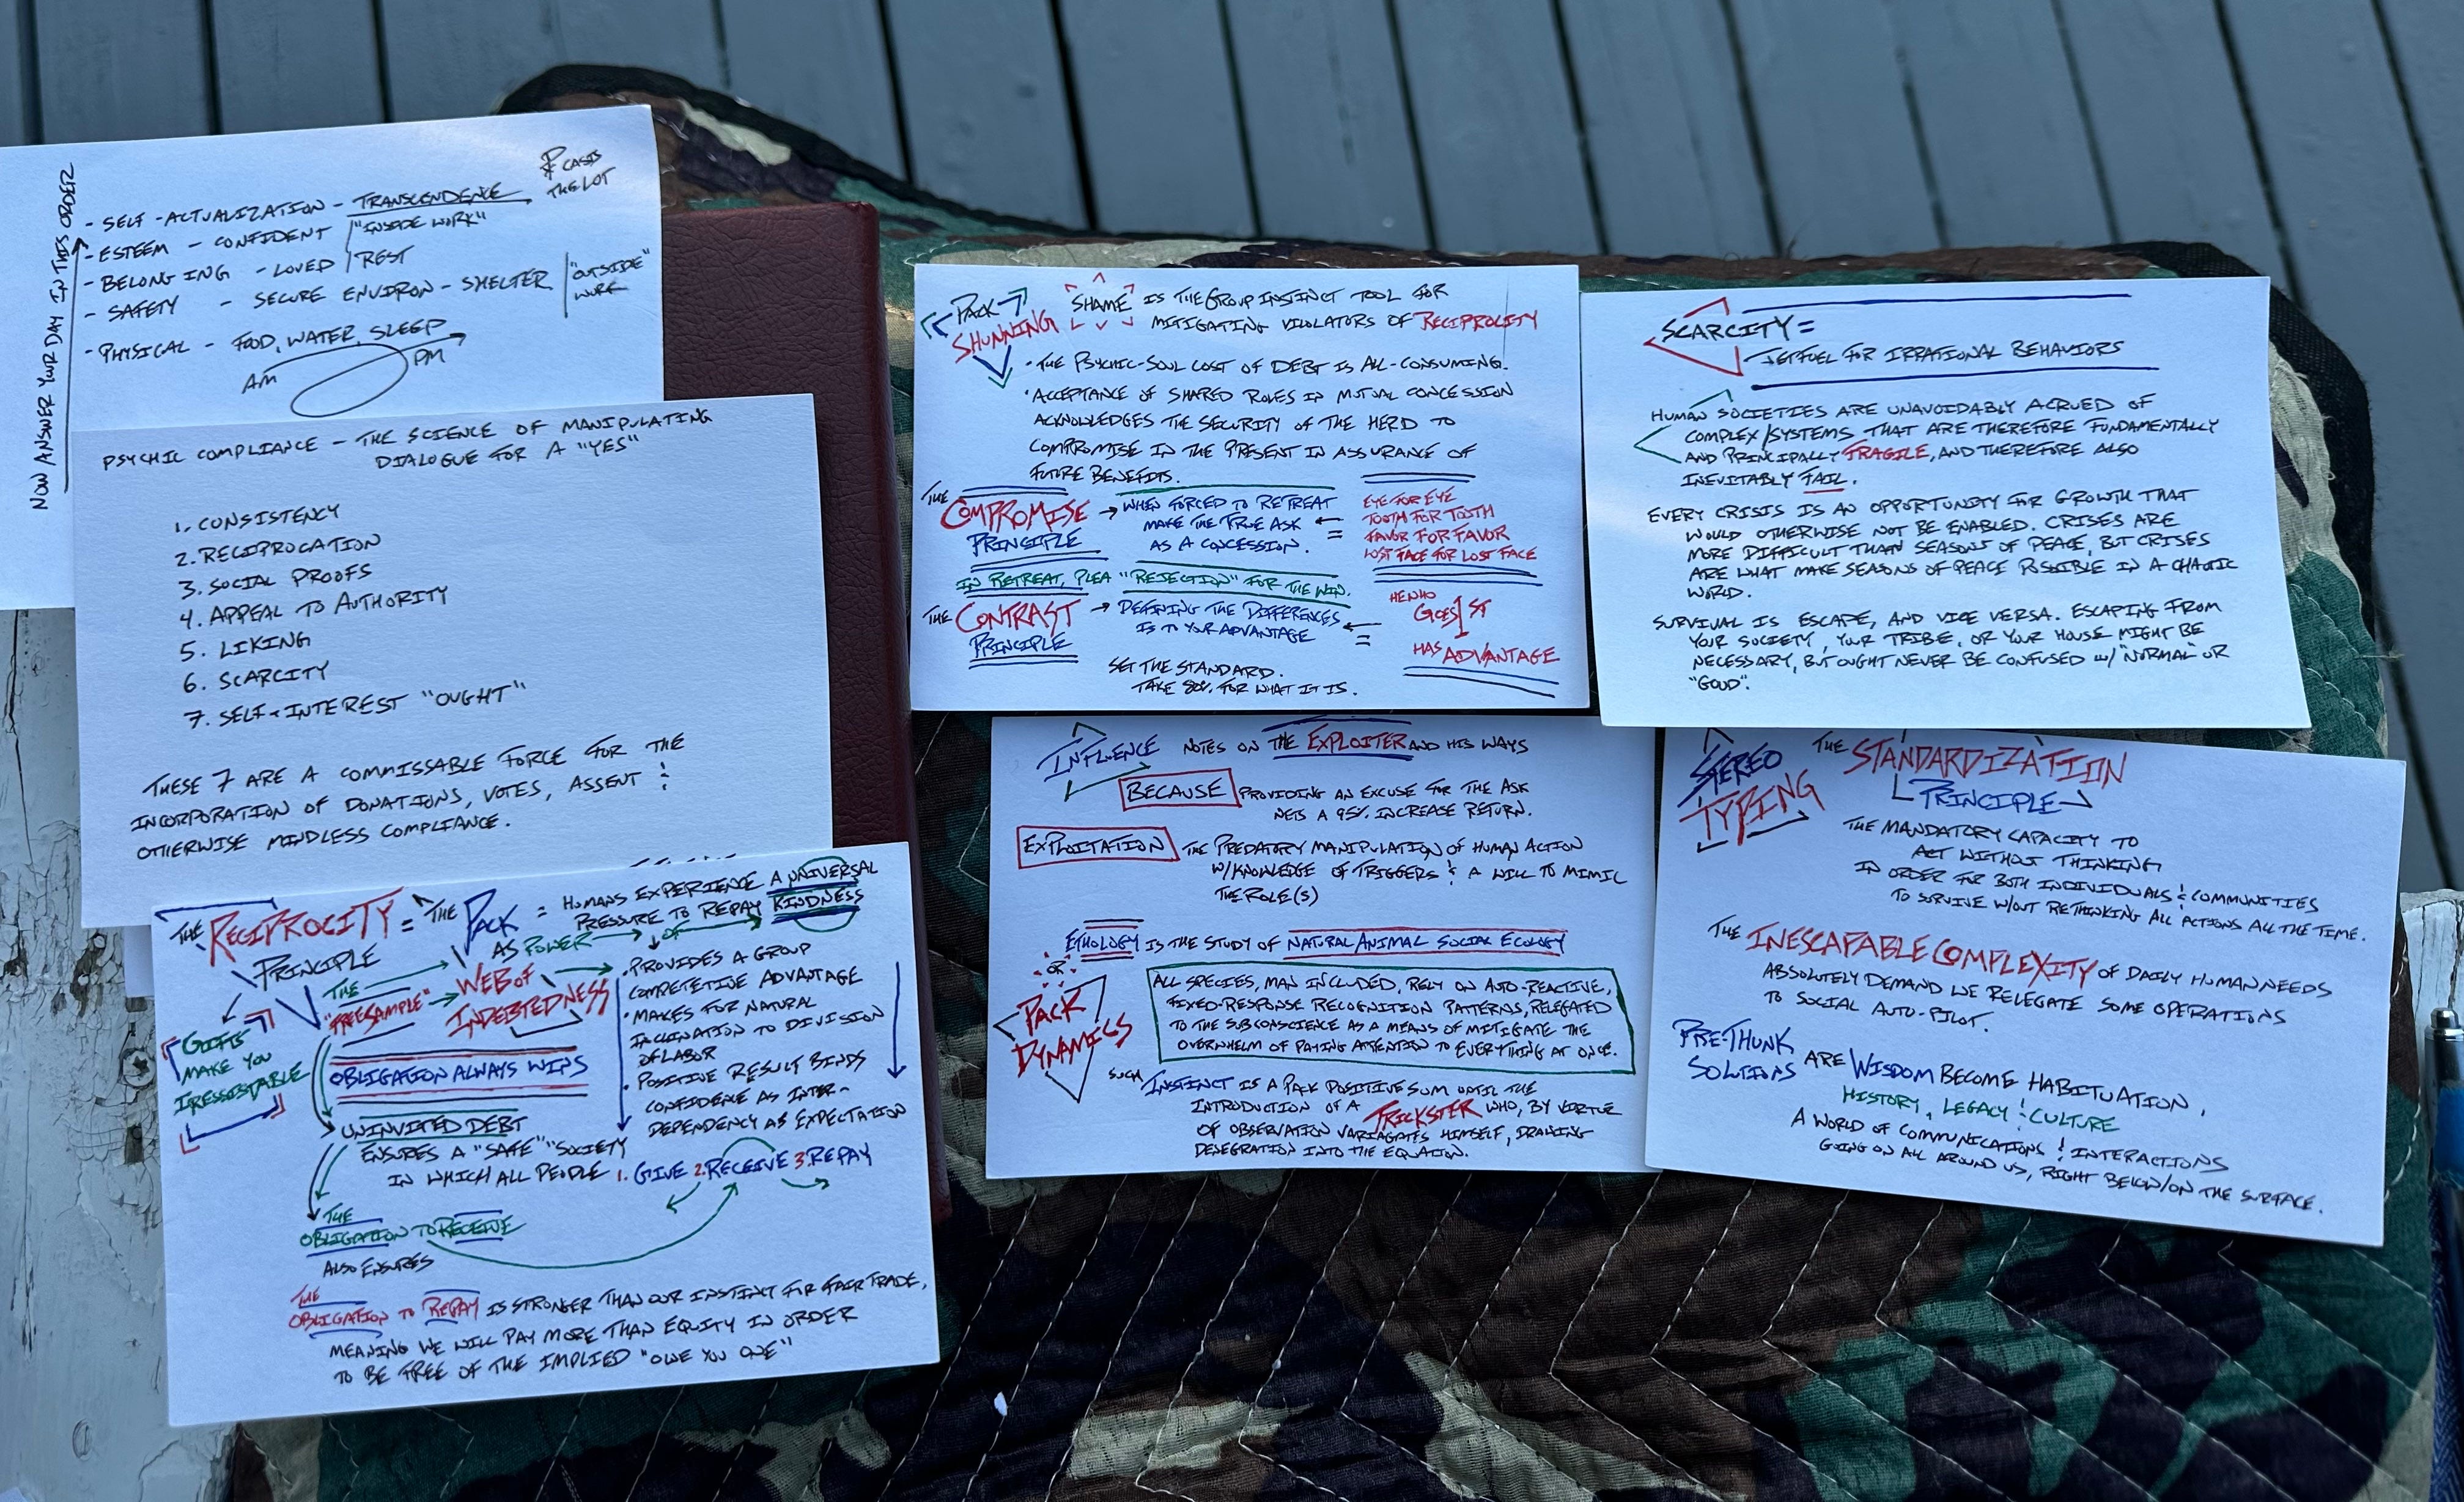 NOW ANSWER YOUR DAY IN THIS ORDER
CASTS
THE LOT
- SELF-ACTUALIZATION - TRANSCENDENCE
- ESTEEM - CONFIDENT / "INSIDE WORK"
- BELONGING - LOVED / REST
- SAFETY - SECURE ENVIRON - SHELTER / "OUTSIDE"
WORK
- PHYSICAL - FOOD, WATER, SLEEP
AM PM
PSYCHIC COMPLIANCE - THE SCIENCE OF MANIPULATING
DIALOGUE FOR A "YES"
1. CONSISTENCY
2. RECIPROCATION
3. SOCIAL PROOFS
4. APPEAL TO AUTHORITY
5. LIKING
6. SCARCITY
7. SELF-INTEREST "OUGHT"
THESE 7 ARE A COMMISSABLE FORCE FOR THE
INCORPORATION OF DONATIONS, VOTES, ASSENT &
OTHERWISE MINDLESS COMPLIANCE.
THE RECIPROCITY = THE PACK = HUMANS EXPERIENCE A UNIVERSAL
PRINCIPLE
AS POWER
PRESSURE TO REPAY KINDNESS
OF
THE
"FREE SAMPLE"
WEB OF
INDEBTEDNESS
GIFTS
MAKE YOU
IRESSISTABLE
OBLIGATION ALWAYS WINS
· PROVIDES A GROUP
COMPETETIVE ADVANTAGE
· MAKES FOR NATURAL
INCLINATION TO DIVISION
OF LABOR
· POSITIVE RESULT BINDS
CONFIDENCE AS INTER-
DEPENDENCY AS EXPECTATION
UNINVITED DEBT
ENSURES A "SAFE" "SOCIETY
IN WHICH ALL PEOPLE 1. GIVE 2. RECEIVE 3. REPAY
THE
OBLIGATION TO RECEIVE
ALSO ENSURES
THE
OBLIGATION TO REPAY IS STRONGER THAN OUR INSTINCT FOR FAIR TRADE,
MEANING WE WILL PAY MORE THAN EQUITY IN ORDER
TO BE FREE OF THE IMPLIED "OWE YOU ONE"
PACK
SHUNNING
SHAME IS THE GROUP INSTINCT TOOL FOR
MITIGATING VIOLATORS OF RECIPROCITY
· THE PSYCHIC-SOUL COST OF DEBT IS ALL-CONSUMING.
· ACCEPTANCE OF SHARED ROLES IN MUTUAL CONCESSION
ACKNOWLEDGES THE SECURITY OF THE HERD TO
COMPROMISE IN THE PRESENT IN ASSURANCE OF
FUTURE BENEFITS.
THE
COMPROMISE
PRINCIPLE
WHEN FORCED TO RETREAT
MAKE THE TRUE ASK
AS A CONCESSION.
=
EYE FOR EYE
TOOTH FOR TOOTH
FAVOR FOR FAVOR
LOST FACE FOR LOST FACE
IN RETREAT, PLEA "REJECTION" FOR THE WIN.
THE CONTRAST
PRINCIPLE
DEFINING THE DIFFERENCES
IS TO YOUR ADVANTAGE
=
HE WHO
GOES 1ST
HAS ADVANTAGE
SET THE STANDARD.
TAKE 80% FOR WHAT IT IS.
INFLUENCE NOTES ON THE EXPLOITER AND HIS WAYS
BECAUSE PROVIDING AN EXCUSE FOR THE ASK
NETS A 95% INCREASE RETURN.
EXPLOITATION THE PREDATORY MANIPULATION OF HUMAN ACTION
W/KNOWLEDGE OF TRIGGERS & A WILL TO MIMIC
THE ROLE(S)
ETHOLOGY IS THE STUDY OF NATURAL ANIMAL SOCIAL ECOLOGY
OR
PACK
DYNAMICS
ALL SPECIES, MAN INCLUDED, RELY ON AUTO-REACTIVE,
FIXED-RESPONSE RECOGNITION PATTERNS, RELEGATED
TO THE SUBCONSCIENCE AS A MEANS OF MITIGATE THE
OVERWHELM OF PAYING ATTENTION TO EVERYTHING AT ONCE.
SUCH INSTINCT IS A PACK POSITIVE SUM UNTIL THE
INTRODUCTION OF A TRICKSTER WHO, BY VIRTUE
OF OBSERVATION VARIAGATES HIMSELF, DRAWING
DENEGRATION INTO THE EQUATION.
SCARCITY =
JETFUEL FOR IRRATIONAL BEHAVIORS
HUMAN SOCIETIES ARE UNAVOIDABLY ACRUED OF
COMPLEX/SYSTEMS THAT ARE THEREFORE FUNDAMENTALLY
AND PRINCIPALLY FRAGILE, AND THEREFORE ALSO
INEVITABLY FAIL.
EVERY CRISIS IS AN OPPORTUNITY FOR GROWTH THAT
WOULD OTHERWISE NOT BE ENABLED. CRISES ARE
MORE DIFFICULT THAN SEASONS OF PEACE, BUT CRISES
ARE WHAT MAKE SEASONS OF PEACE POSSIBLE IN A CHAOTIC
WORLD.
SURVIVAL IS ESCAPE, AND VICE VERSA. ESCAPING FROM
YOUR SOCIETY, YOUR TRIBE, OR YOUR HOUSE MIGHT BE
NECESSARY, BUT OUGHT NEVER BE CONFUSED W/ "NORMAL" OR
"GOOD".
STEREO
TYPING
THE STANDARDIZATION
PRINCIPLE
THE MANDATORY CAPACITY TO
ACT WITHOUT THINKING
IN ORDER FOR BOTH INDIVIDUALS & COMMUNITIES
TO SURVIVE W/OUT RETHINKING ALL ACTIONS ALL THE TIME.
THE INESCAPABLE COMPLEXITY OF DAILY HUMAN NEEDS
ABSOLUTELY DEMAND WE RELEGATE SOME OPERATIONS
TO SOCIAL AUTO-PILOT.
PRE-THUNK
SOLUTIONS ARE WISDOM BECOME HABITUATION,
HISTORY, LEGACY & CULTURE
A WORLD OF COMMUNICATIONS & INTERACTIONS
GOING ON ALL AROUND US, RIGHT BELOW/ON THE SURFACE.